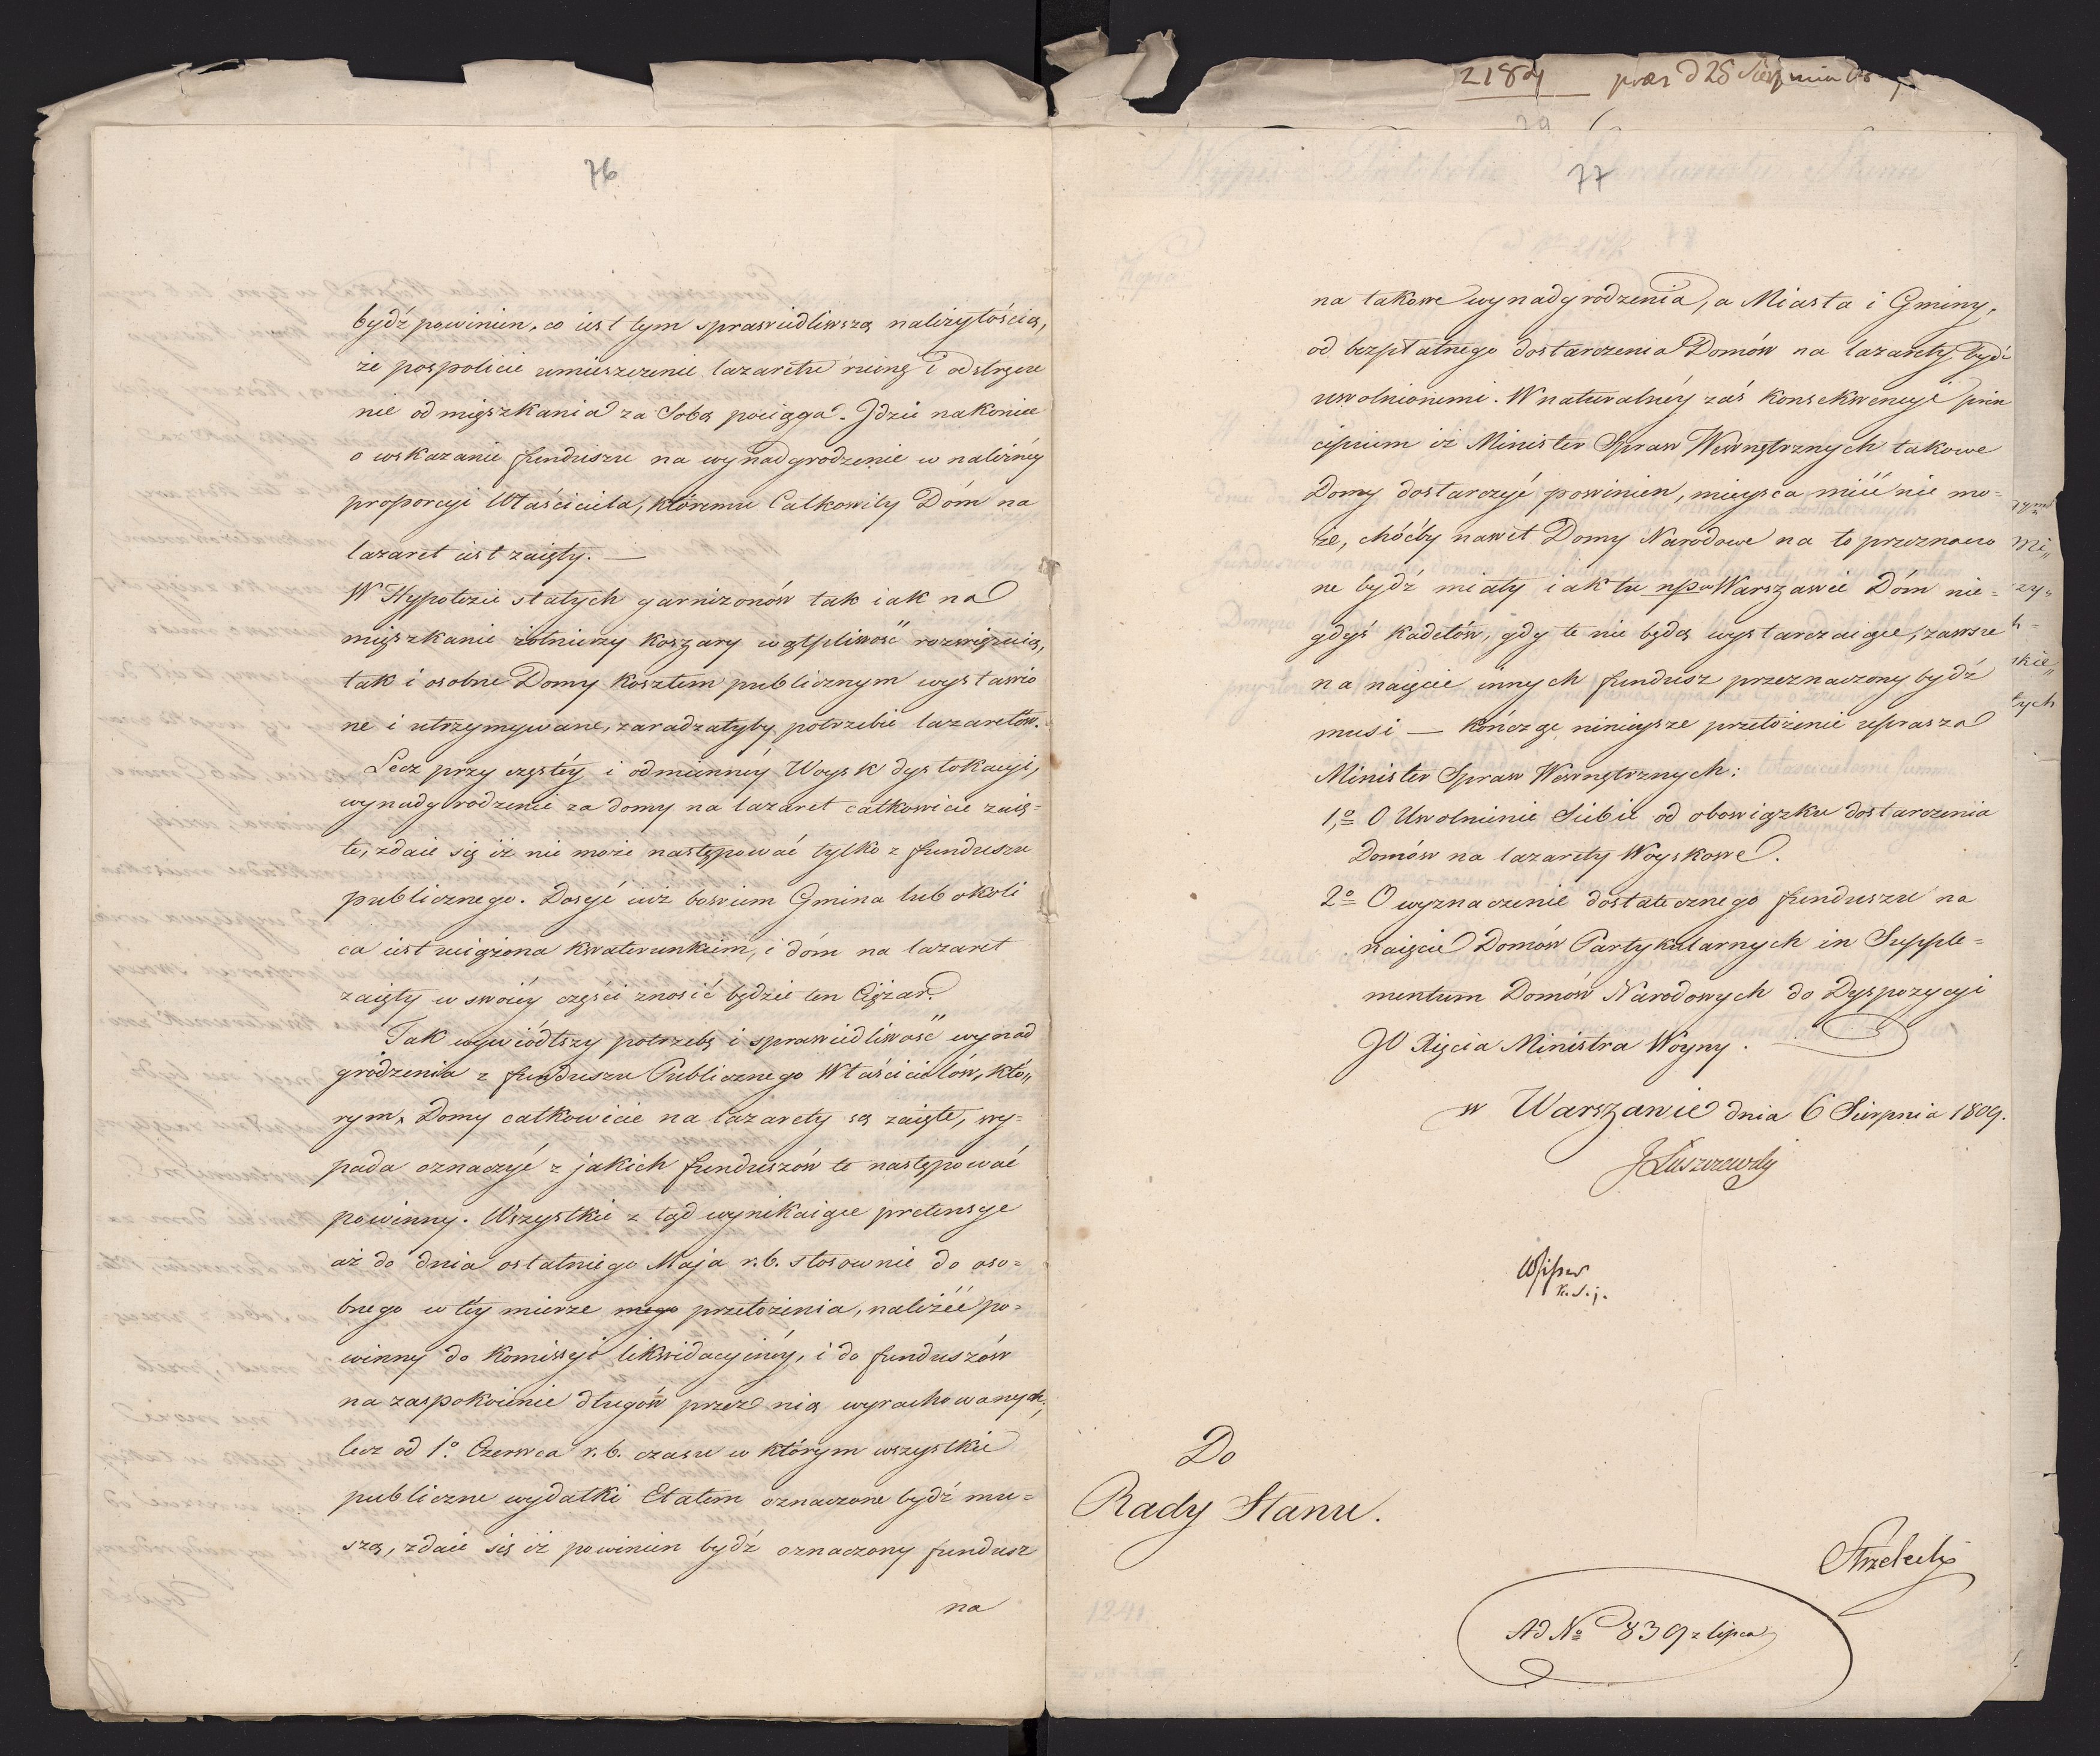 76
bydź powinien, co iest tym sprawiedliwszą należytością,
że pospolicie umieszczenie lazaretu ruinę i odstręcze
nie od mięszkania za Sobą pociąga. Jdzie nakoniec
o wskazanie funduszu na wynadgrodzenie w należnéy
proporcyi Właściciela, któremu Całkowity Dóm na
lazaret iest zaięty. —
W Hypotezie stałych garnizonów tak iak na
mięszkanie żołnierzy koszary wątpliwość rozwięzuią,
tak i osobne Domy kosztem publicznym wystawio
ne i utrzymywane, zaradzałyby potrzebie lazaretów.
Lecz przy częstéy i odmiennéy Woysk dyslokacyi,
wynadgrodzenie za domy na lazaret całkowicie zaię=
te, zdaie się iż nie może następować tylko z funduszu
publicznego. Dosyć iuż bowiem Gmina lub okoli
ca iest uciążona kwaterunkiem, i dóm na lazaret
zaięty w swoiéy części znosić będzie ten Ciężar.
Tak wywiódłszy potrzebę i sprawiedliwość wynad
grodzenia z funduszu Publicznego Właścicielów, któ„
rym Domy całkowicie na lazarety są zaięte, wy=
pada oznaczyć z jakich funduszów te następować
powinny. Wszystkie z tąd wynikaiące pretensye
aż do dnia ostatniego Maja r.b. stosownie do oso=
bnego w téy mierze mego przełożenia, należéć po=
winny do Komissyi likwidacyinéy, i do funduszów
na zaspokoienie długów przez nią wyrachowanych,
lecz od 1o. Czerwca r.b. czasu w którym wszystkie
publiczne wydatki Etatem oznaczone bydź mu=
szą, zdaie się iż powinien bydź oznaczony fundusz
na
2184 præs d 28 Sierpnia
77
na takowe wynadgrodzenia, a Miasta i Gminy,
od bezpłatnego dostarczenia Domów na lazarety bydź
uwolnionemi. W naturalnéy zaś konsekwencyi prin
cipium iż Minister Spraw Wewnętrznych takowe
Domy dostarczyć powinien, mieysca mieć nie mo=
że, chóćby nawet Domy Narodowe na to przeznaczo
ne bydź miały iak tu np. w Warszawie Dóm nie=
gdyś kadetów, gdy te nie będą wystarczaiące, zawsze
na naięcie innych fundusz przeznaczony bydź
musi — kończąc ninieysze przełożenie uprasza
Minister Spraw Wewnętrznych:
1,o O Uwolnienie Siebie od obowiązku dostarczenia
Domów na lazarety Woyskowe.
2o O wyznaczenie dostatecznego funduszu na
naięcie Domów Partykularnych in Supple=
mentum Domów Narodowych do Dyspozycyi
JO Xięcia Ministra Woyny.
w Warszawie dnia 6 Sierpnia 1809.
J Łuszczewski
Do
Rady Stanu.
Strzelecki
Ad No 839 z lipca